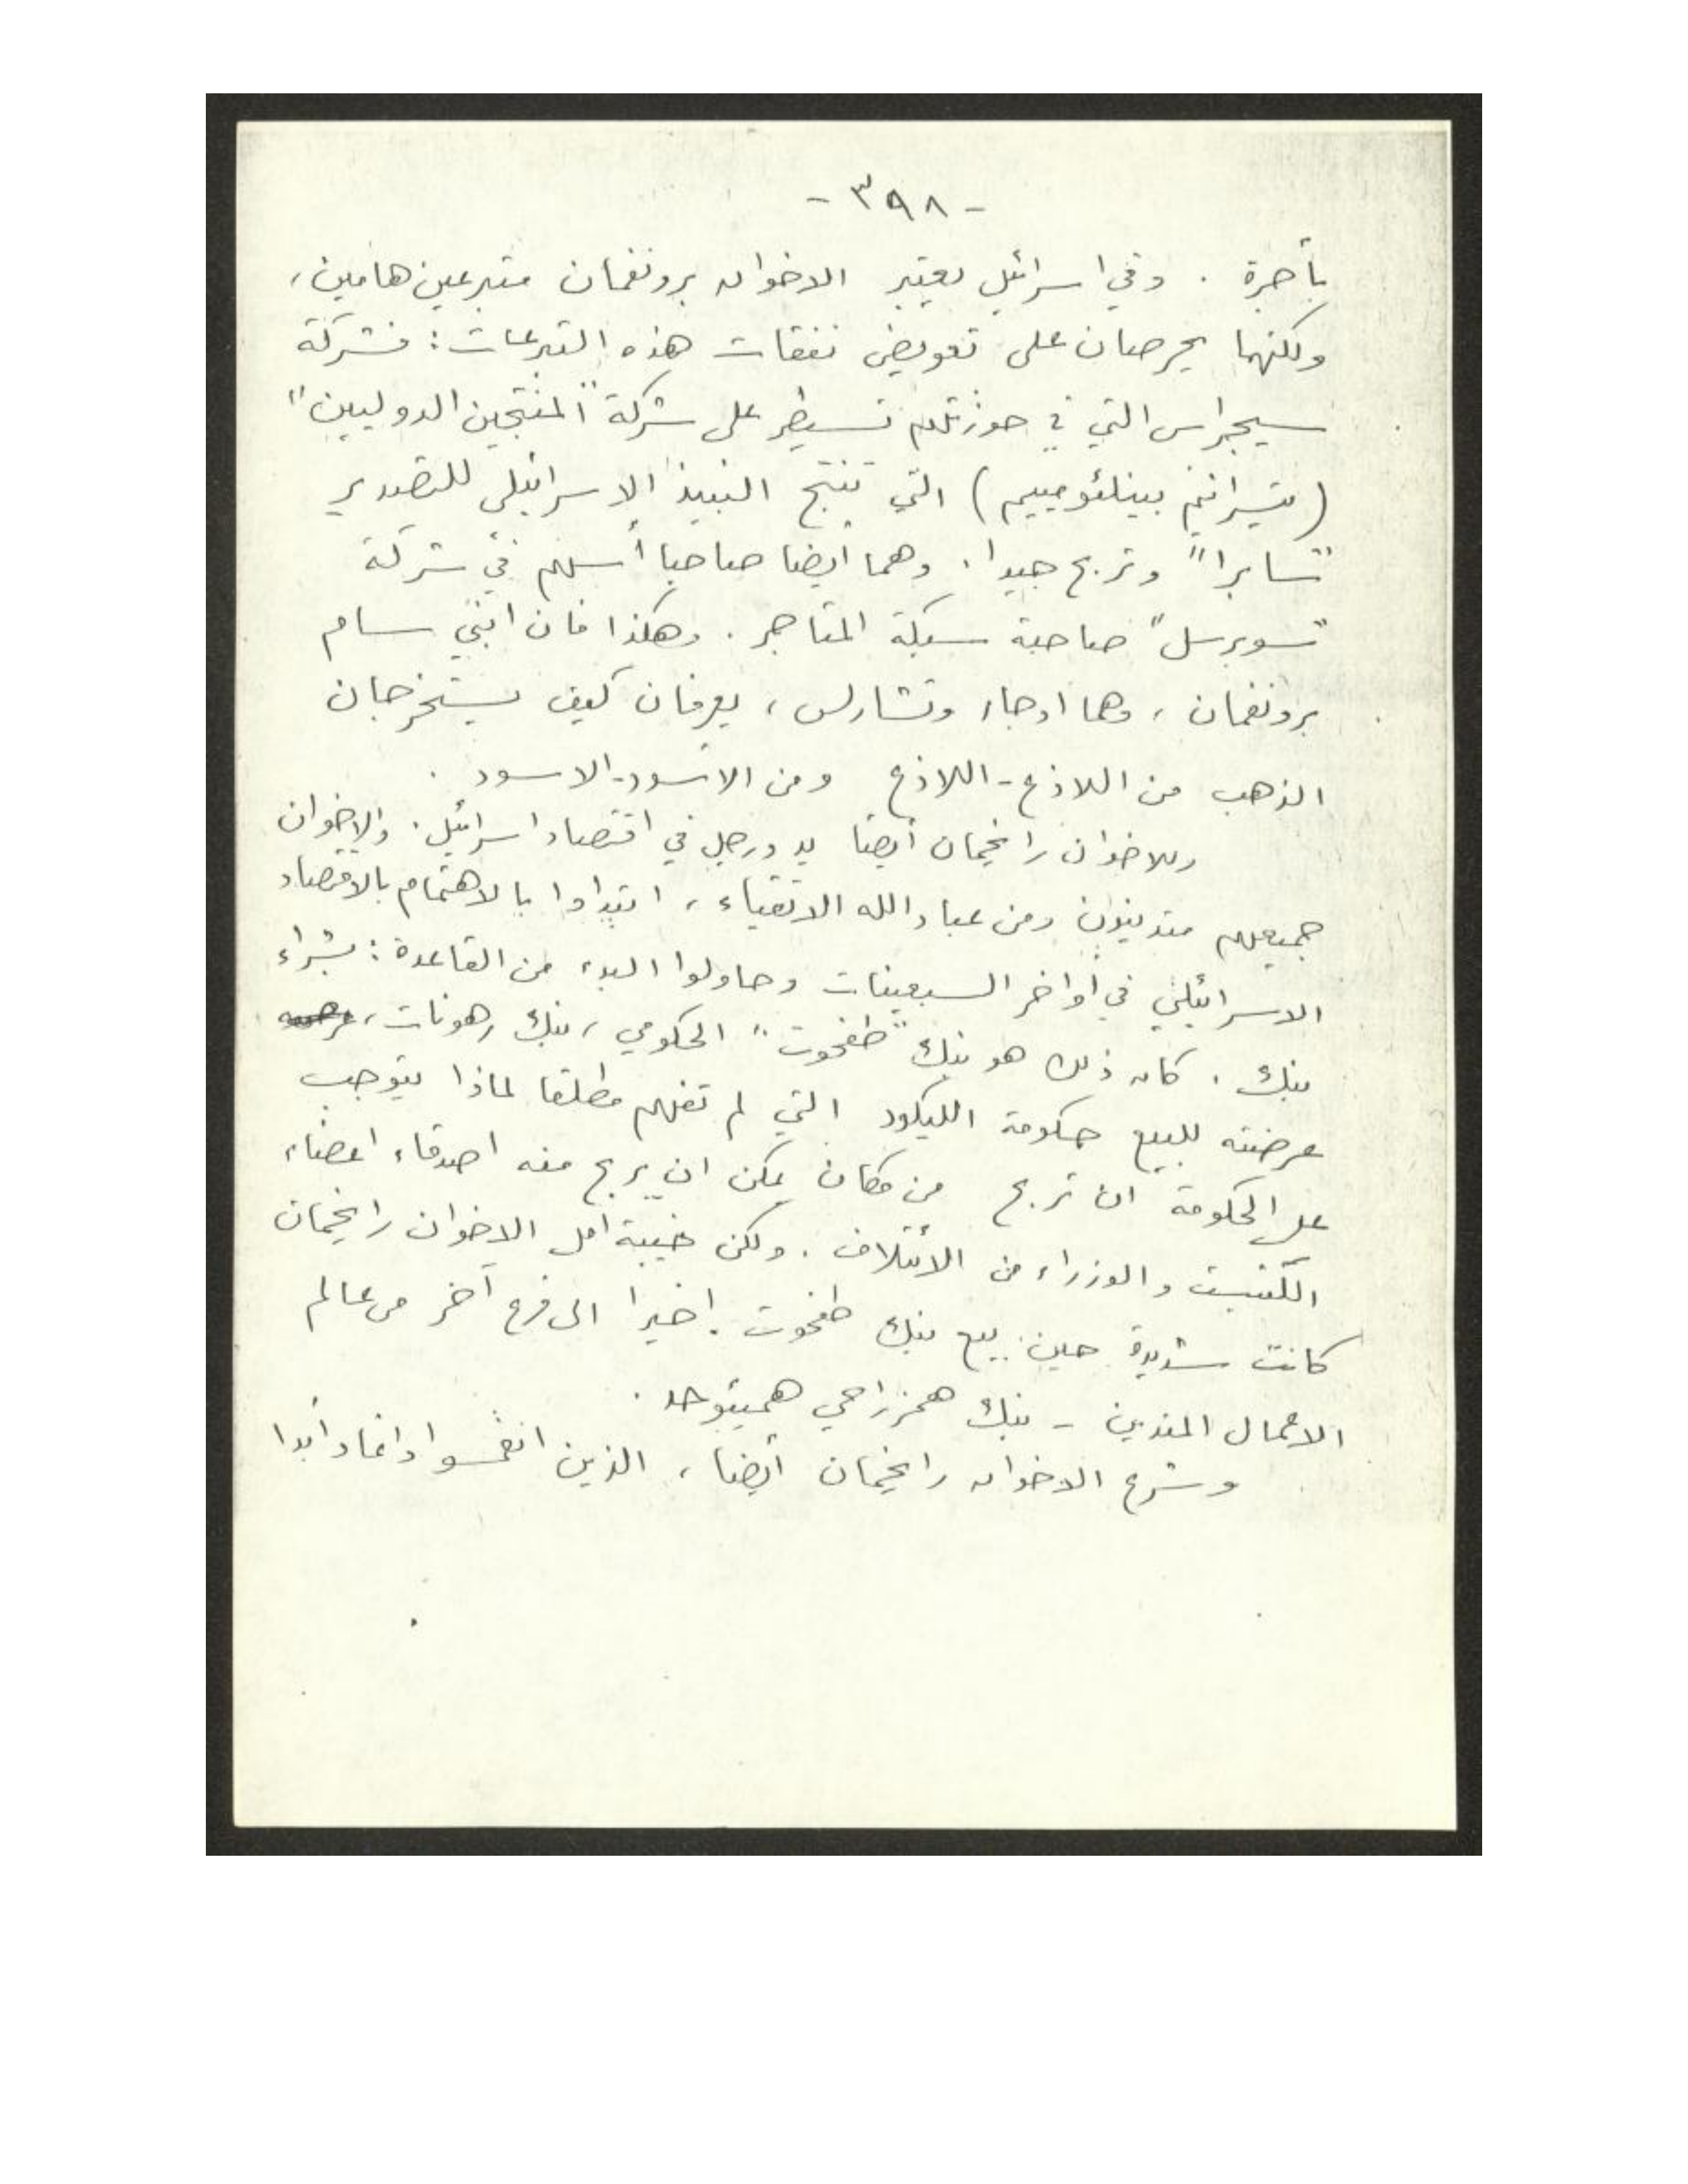 - ٣٩٨ -
بأجرة . وفي اسرائيل يعتبر الاخوان برونفمان متبرعين هامين،
ولكنهما يحرصان على تعويض نفقات هذه التبرعات : فشركة
سيجرامس التي في حوزتهم تسيطر على شركة "المنتجين الدوليين"
( بينلئوميم ) التي تنتج النبيذ الاسرائيلي للتصدير
"سابرا" وتربح جيدا . وهما أيضا صاحبا أسهم في شركة
"سوبرسل" صاحبة سبكة المتاجر . وهكذا فان ابني سام
برونفمان ، وهما ادجار وتشارلس ، يعرفان كيف يستخرجان
الذهب من اللاذع - اللاذع ومن الأسود - الاسود .
وللاخوان رايخمان أيضا يد ورجل في اقتصاد اسرائيل . والاخوان
جميعهم متدينون ومن عباد الله الاتقياء ، ابتدأوا بالاهتمام بالاقتصاد
الاسرائيلي في أواخر السبعينات وحاولوا البدء من القاعدة : بشراء
بنك . كان ذلك هو بنك "طفحوت" الحكومي ، بنك رهونات ،
عرضته للبيع حكومة الليكود التي لم تفهم مطلقا لماذا يتوجب
على الحكومة ان تربح من مكان يمكن ان يربح منه اصدقاء اعضاء
الكنيست والوزراء من الائتلاف . ولكن خيبة أمل الاخوان رايخمان
كانت شديدة حين بيع بنك طفحوت أخيرا الى فرع آخر من عالم
الاعمال المتدين - بنك همزراحي همئوحد .
وشرع الاخوان رايخمان أيضا ، الذين انغمسوا دائما وأبدا